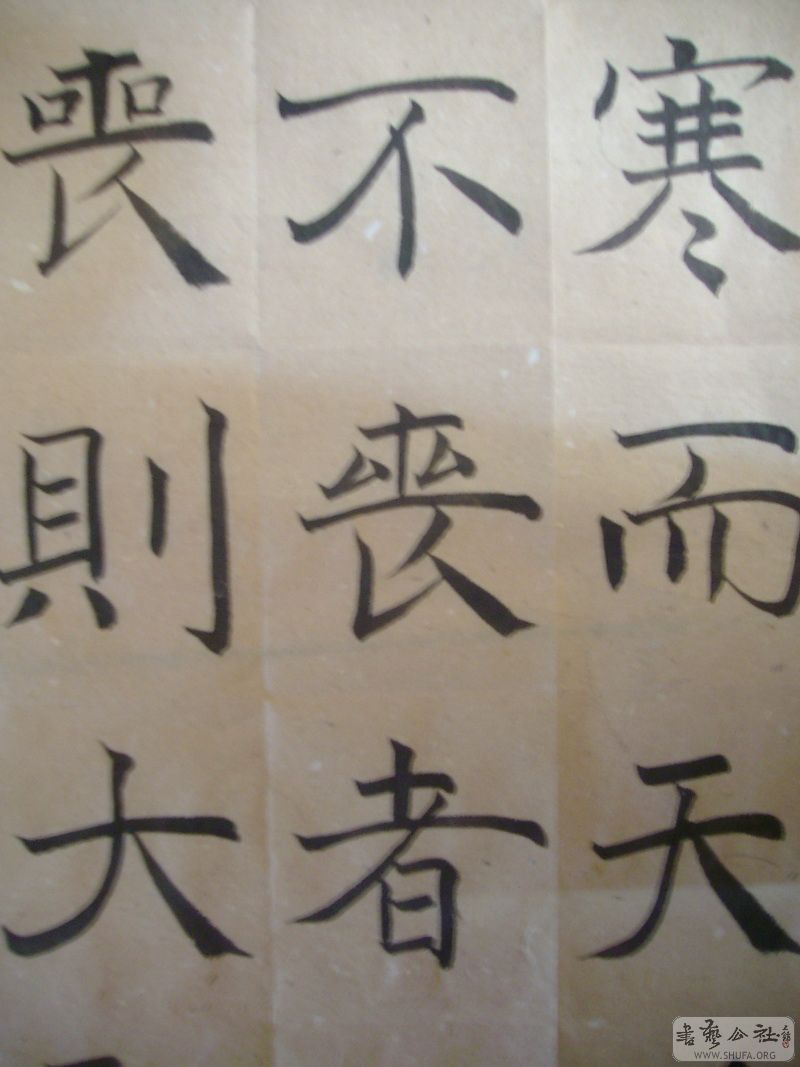 寒而天
不喪者
喪則大
書藝公社
WWW.SHUFA.ORG